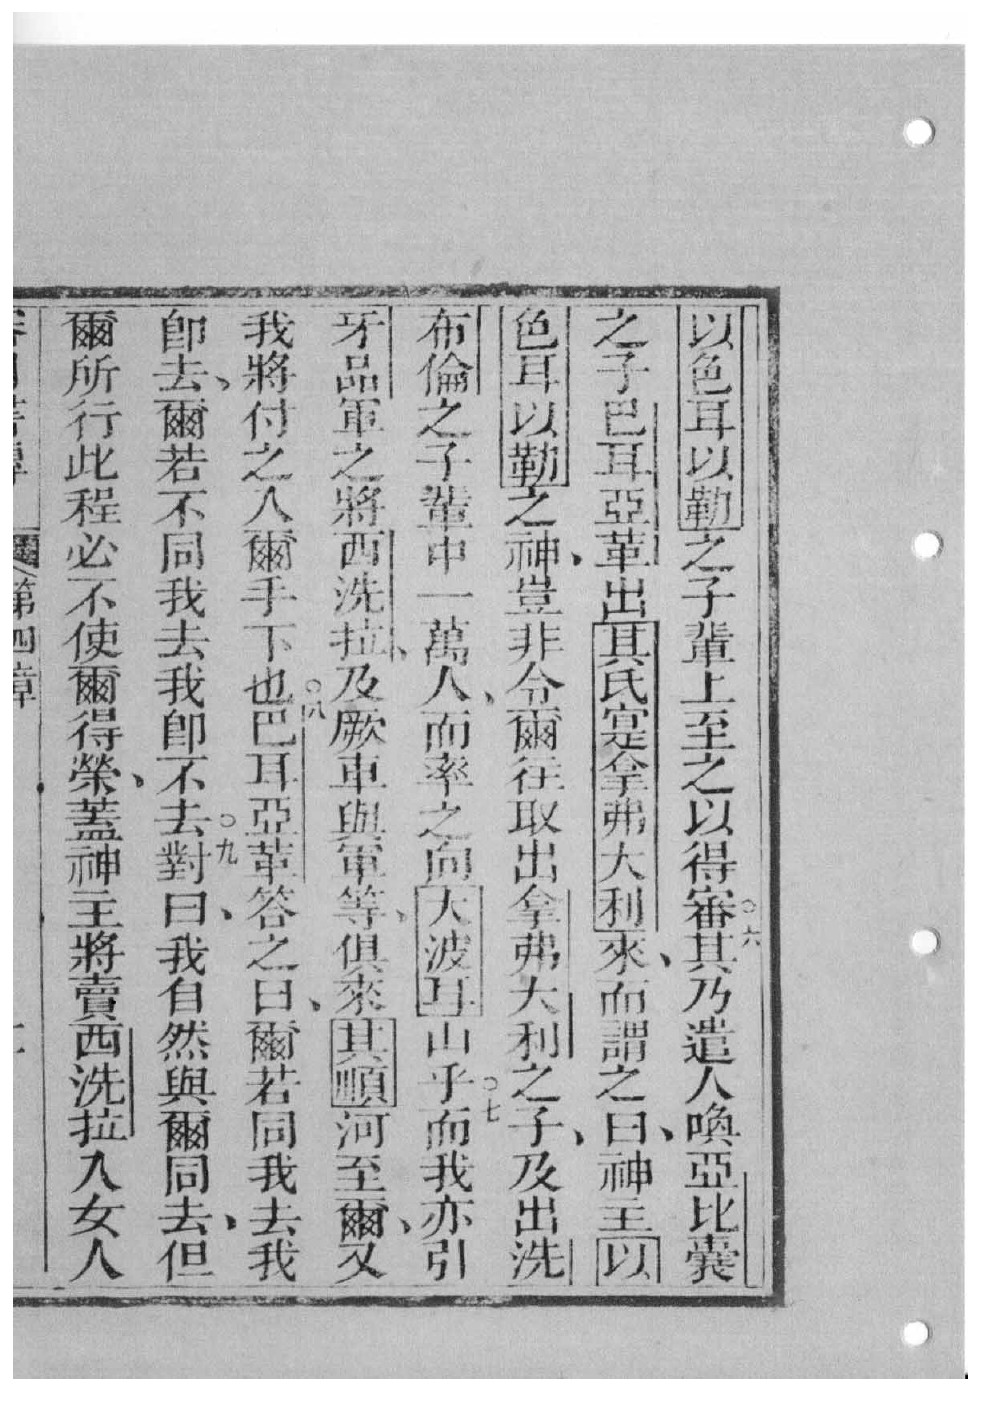 以色耳以勒之子輩上至之以得審○六其乃遣人喚亞比囊
之子巴耳亞革出其氏寔拿弗大利來、而謂之曰、神主以
色耳以勒之神、豈非令爾往取出拿弗大利之子、及出洗
布倫之子輩中一萬人、而率之向大波耳山乎○七而我亦引
牙品軍之將西洗拉、及厥車與軍等、俱來其順河至爾、又
我將付之入爾手下也○八巴耳亞革答之曰、爾若同我去我
卽去、爾若不同我去我卽不去○九對曰、我自然與爾同去、但
爾所行此程必不使爾得榮、蓋神主將賣西洗拉入女人
第四章